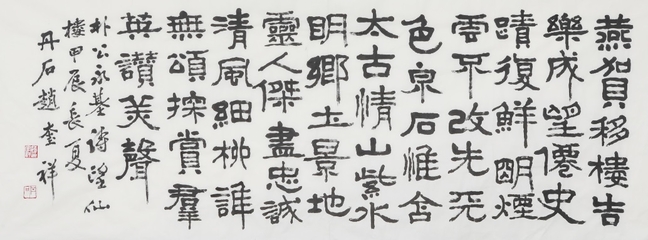 燕賀移樓告
樂成望僊史
蹟復鮮朙煙
雲不改先天
色泉石惟含
太古情山紫水
朙鄉土景地
靈人傑盡忠誠
清風細柳誰
無頌探賞羣
英讚美聲
朴公永基詩望仙
樓甲辰長夏
丹石趙奎祥